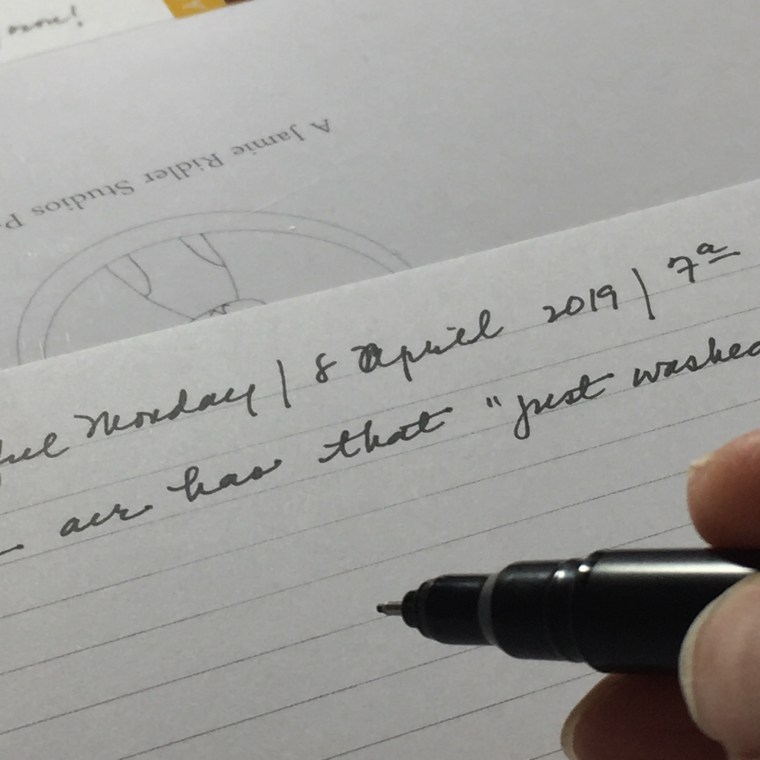 A Jamie Ridler Studios P
Monday | 8 April 2019 | 7a
air has that "just washed